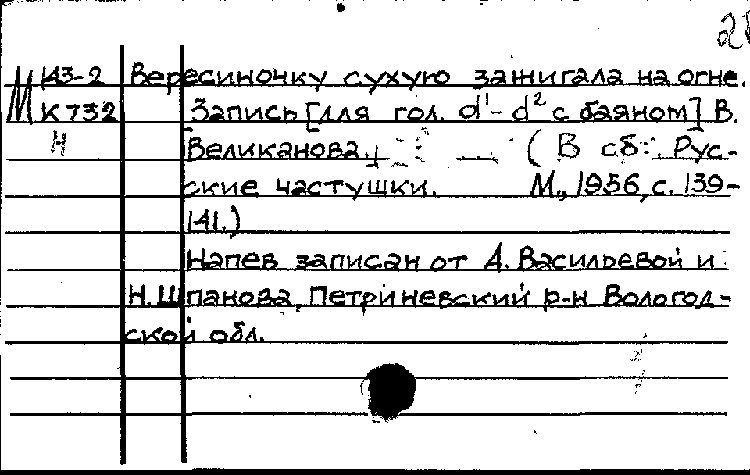 28
М 143-2 Вересиночку сухую зажигала на огне.
К 732 Запись [для гол. d¹-d² с баяном] В.
Н Великанова. (В сб: Рус-
ские частушки. М., 1956, с. 139-
141.)
Напев записан от А. Васильевой и
Н. Шпанова, Петриневский р-н Вологод-
ской обл.